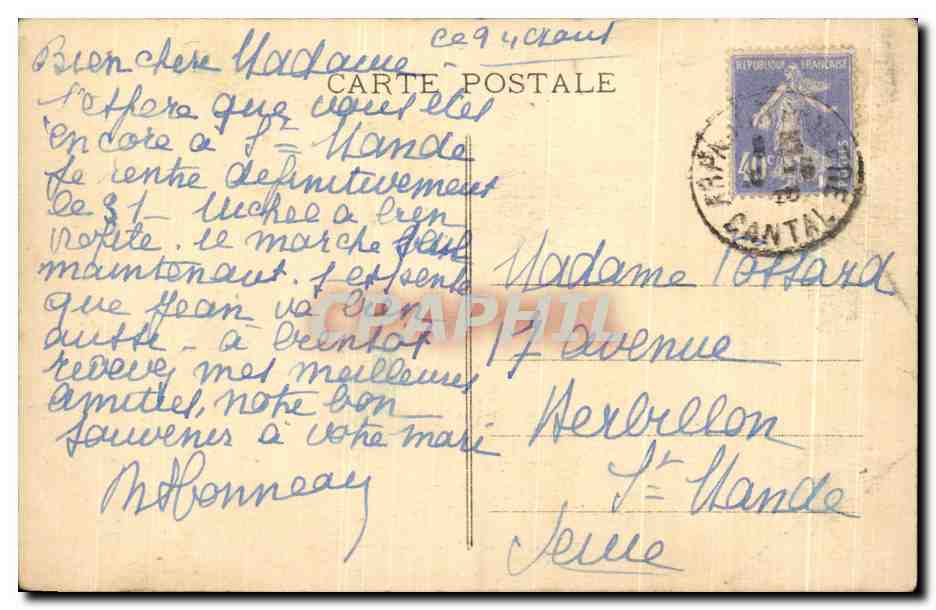 ce 9 Aout
Bien chère Madame
CARTE POSTALE
J'espere que vous etes
encore à St Mandé
Je rentre definitivement
le 31 - Michel a bien
profite. il marche seul
maintenant. J'espere
que Jean va bien
aussi - à bientot
recevez mes meilleures
amities, notre bon
souvenir à votre mari
REPUBLIQUE FRANÇAISE
40c
CANTAL
Madame Possard
17 avenue
Herbillon
St Mandé
Seine
CPAPHIL